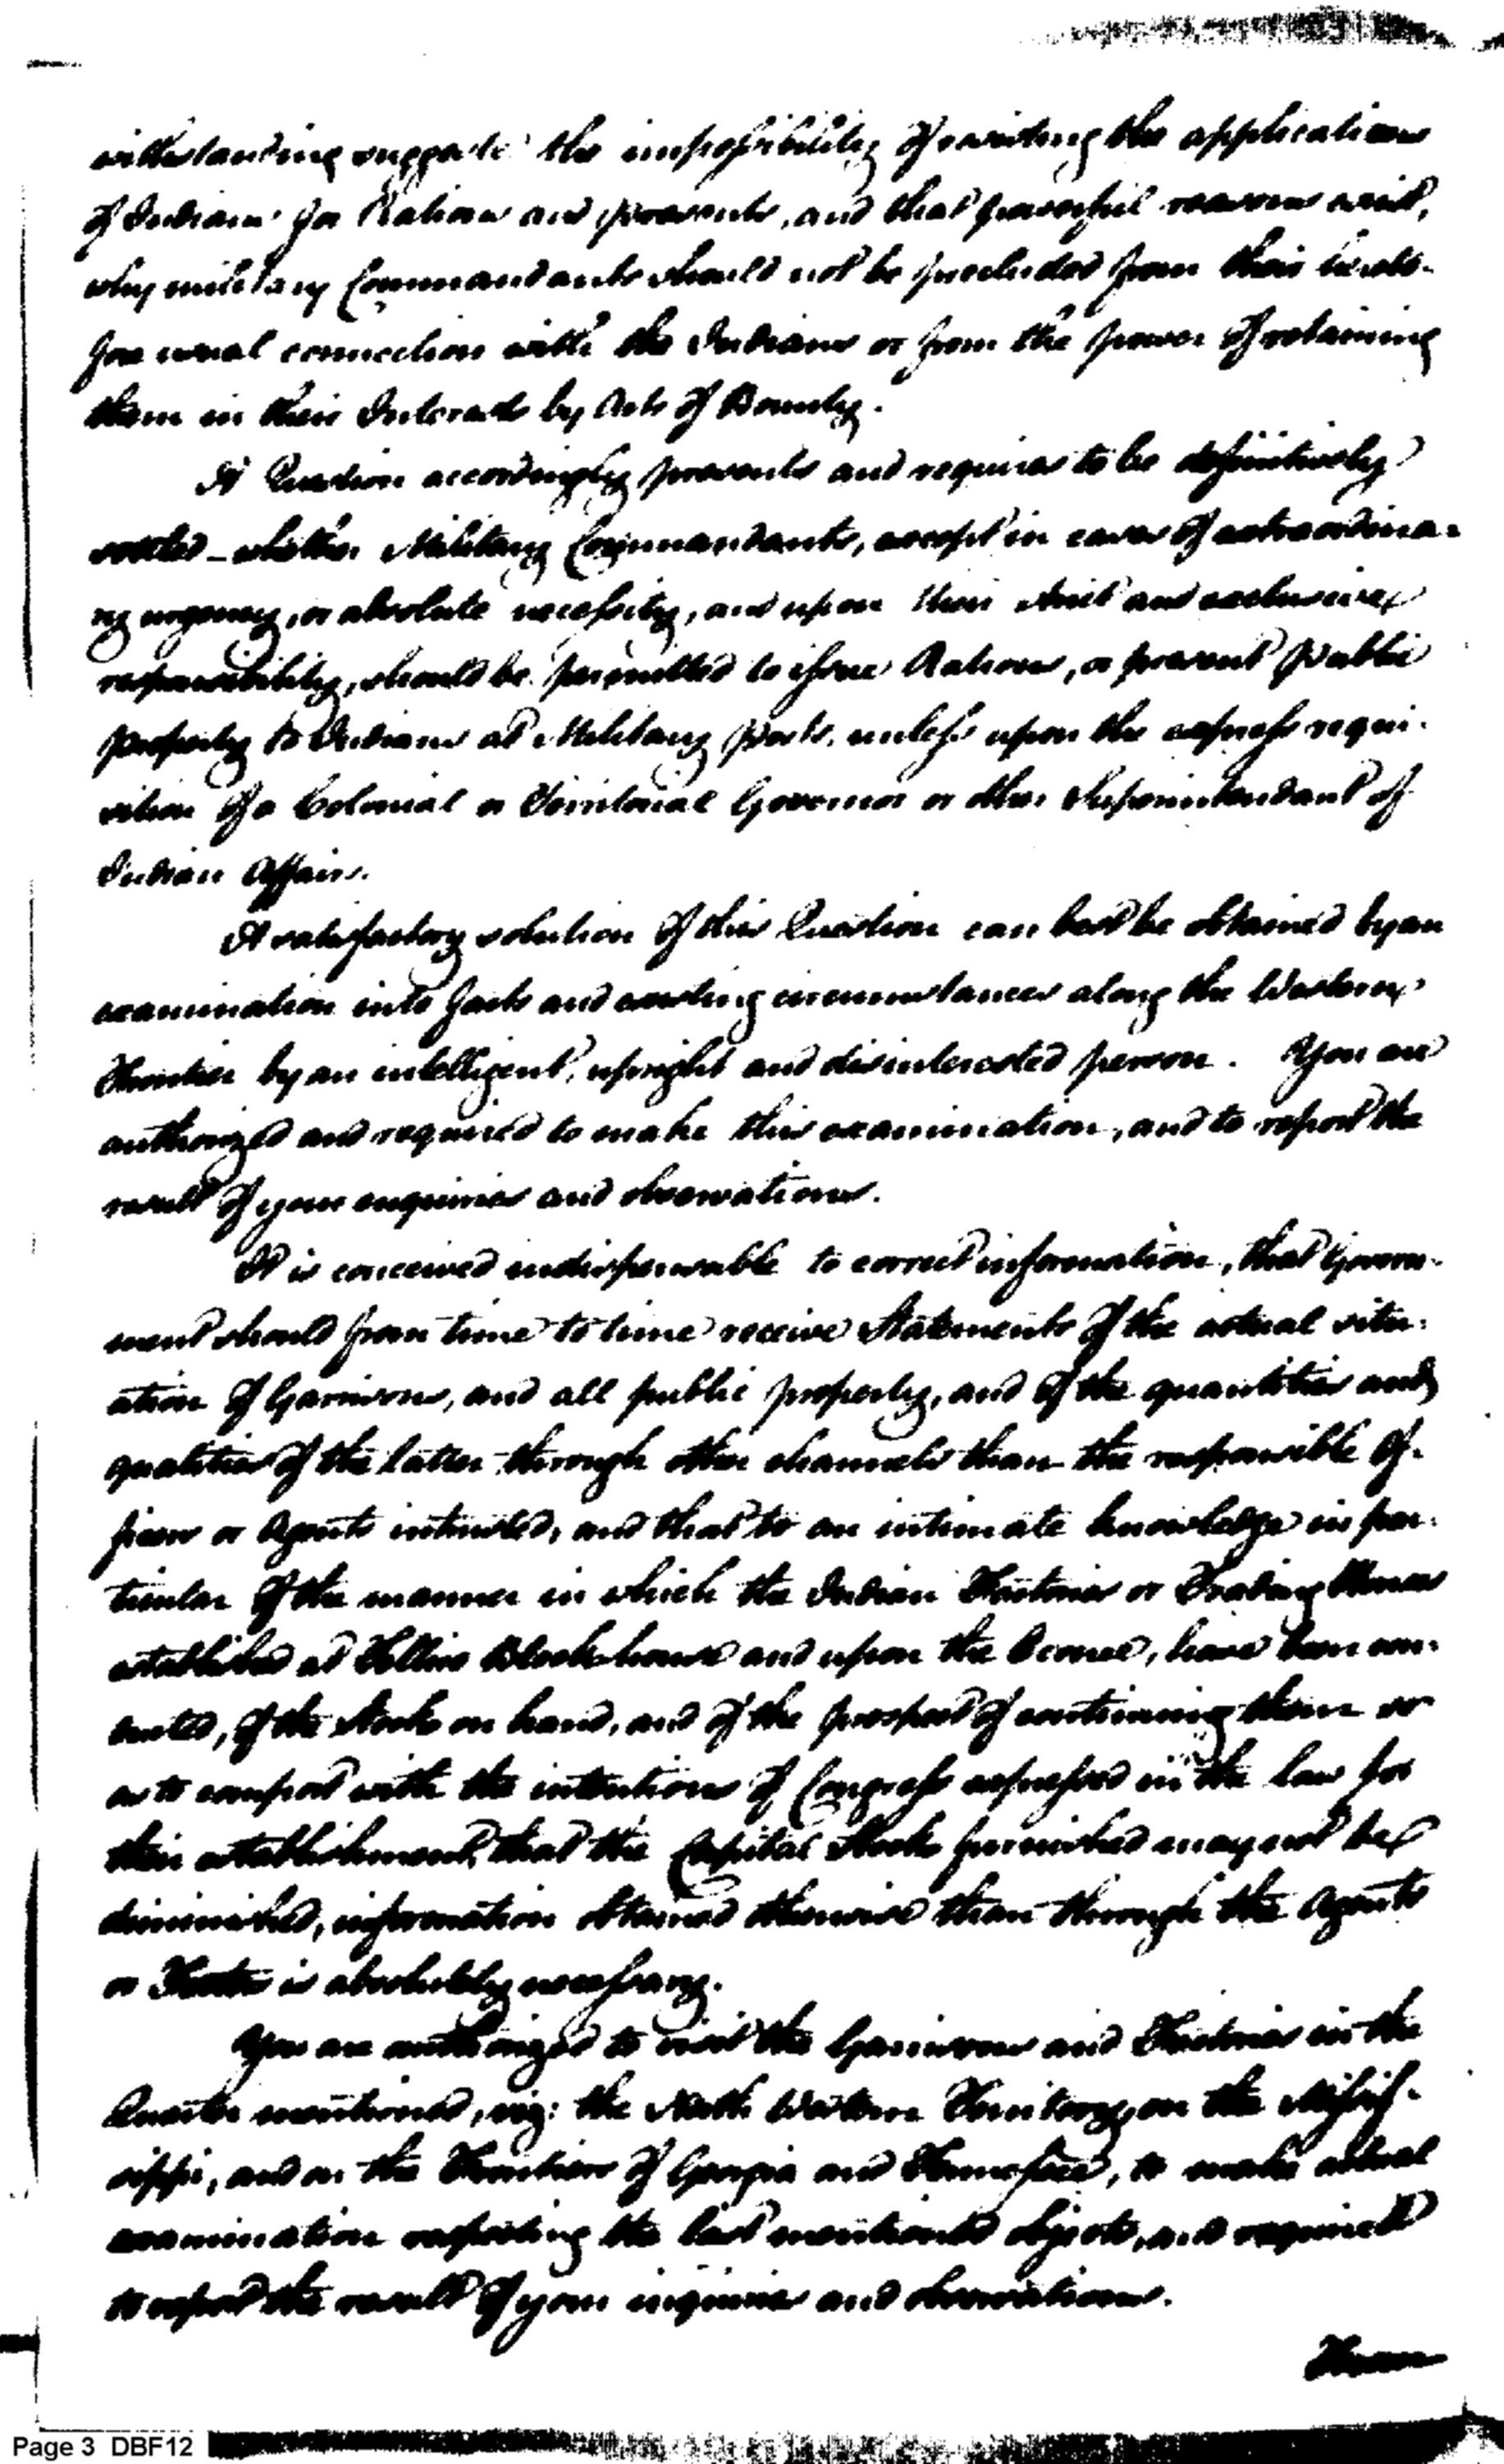 withstanding suggested the impossibility of resisting the applications
of Indians for Rations and presents, and that powerful reasons exist,
why military Commandants should not be precluded from their hereto-
fore usual connection with the Indians or from the power of retaining
them in their Interests by Acts of Bounty.
A Question accordingly presents and requires to be definitively
settled - whether Military Commandants, except in cases of extraordina-
ry urgency, or absolute necessity, and upon their strict and exclusive
responsibility, should be permitted to issue Rations, or present public
property to Indians at Military posts, unless upon the express requi-
sition of a Colonial or Territorial Governor or other Superintendant of
Indian Affairs.
A satisfactory solution of this Question can best be obtained by an
examination into facts and existing circumstances along the Western
Frontier by an intelligent, upright and disinterested person. You are
authorized and required to make this examination, and to report the
result of your enquiries and observations.
It is conceived indispensable to correct information, that Govern-
ment should from time to time receive Statements of the actual situ-
ation of Garrisons, and all public property, and of the quantities and
qualities of the latter through other channels than the responsible Of-
ficers or Agents intrusted, and that to an intimate knowledge in par-
ticular of the manner in which the Indian Factories or Trading Houses
established at Tellico Blockhouse and upon the Oconee, have been con-
ducted, of the Stocks on hand, and of the prospect of continuing them so
as to comport with the intentions of Congress expressed in the law for
their establishment, that the Capital Stock furnished may not be
diminished, information obtained otherwise than through the Agents
or Factors is absolutely necessary.
You are authorized to visit the Garrisons and Factories in the
Quarter mentioned, viz: the North Western Territory, on the Missis-
sippi, and on the Frontiers of Georgia and Tennessee, to make actual
examination respecting the last mentioned objects, and required
to report the result of your inquiries and observations.